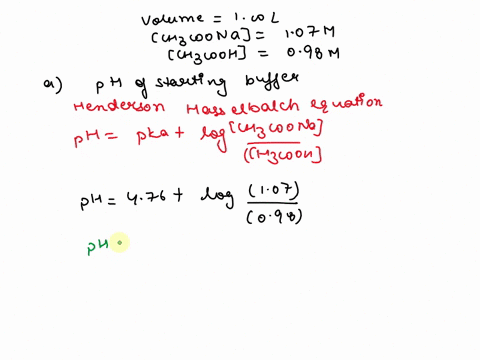 Volume = 1.00L
[CH3COONa] = 1.07 M
[CH3COOH] = 0.98 M
a) pH of starting buffer
Henderson Hasselbalch equation
pH = pka + log [CH3COONa]
[CH3COOH]
pH = 4.76 + log (1.07)
(0.98)
pH =